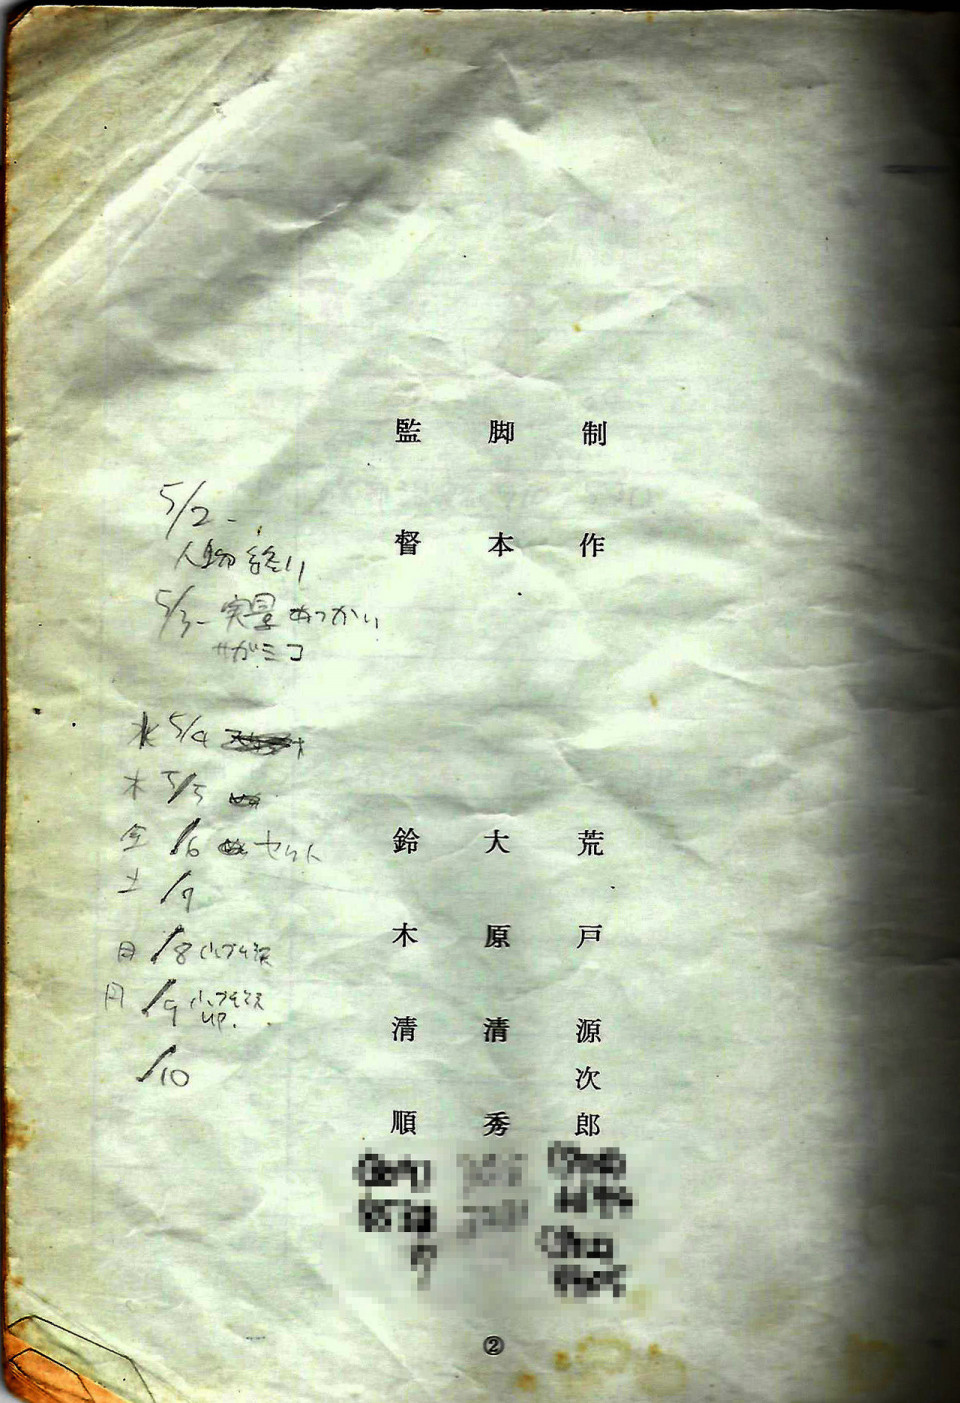 制作 荒戸源次郎
脚本 大原清秀
監督 鈴木清順
5/2-
人物終り
5/3- 実景あつかい
サガミコ
水 5/4
木 5/5
金 /6 セット
土 /7
日 /8
月 /9
up.
/10
②